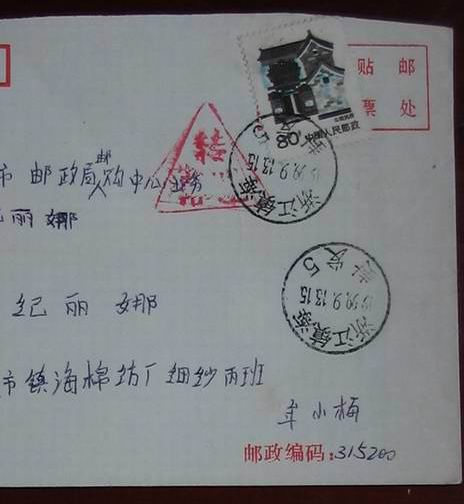 贴 邮
票 处
80分
中国人民邮政
市邮政局邮购中心业务
丽娜
浙江镇海
1999.9.13.15
浙江镇海
1999.9.13.15
5
纪丽娜
市镇海棉纺厂细纱丙班
年小梅
邮政编码:315200